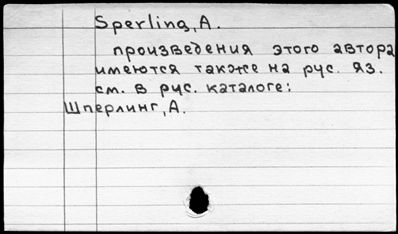 Sperling, A.
произведения этого автора
имеются также на рус. яз.
см. в рус. каталоге:
Шперлинг, А.